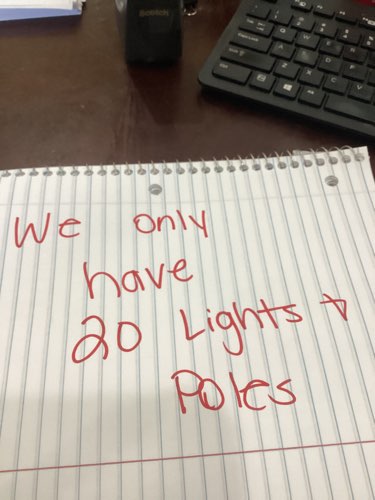 Scotch
We only
have
20 Lights +
Poles